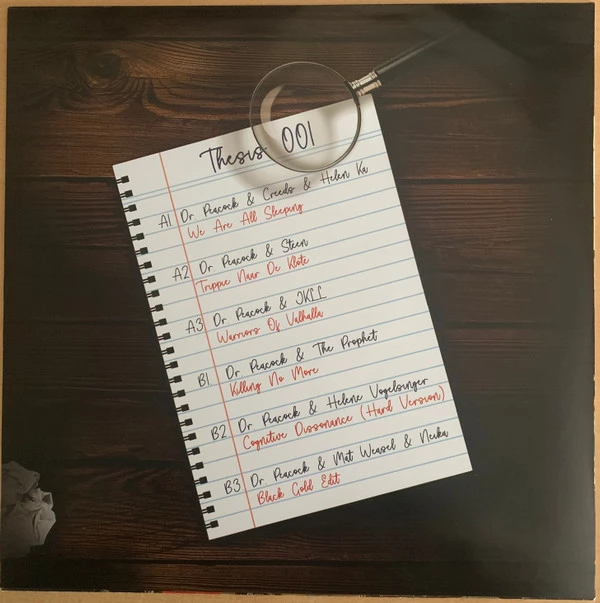 Thesis 001
A1 Dr Peacock & Creeds & Helen Ka
We Are All Sleeping
A2 Dr Peacock & Steen
Trippie Naar De Klote
A3 Dr Peacock & JKLL
Warriors Of Valhalla
B1 Dr Peacock & The Prophet
Killing No More
B2 Dr Peacock & Helene Vogelsinger
Cognitive Dissonance (Hard Version)
B3 Dr Peacock & Mat Weasel & Neika
Black Gold Edit